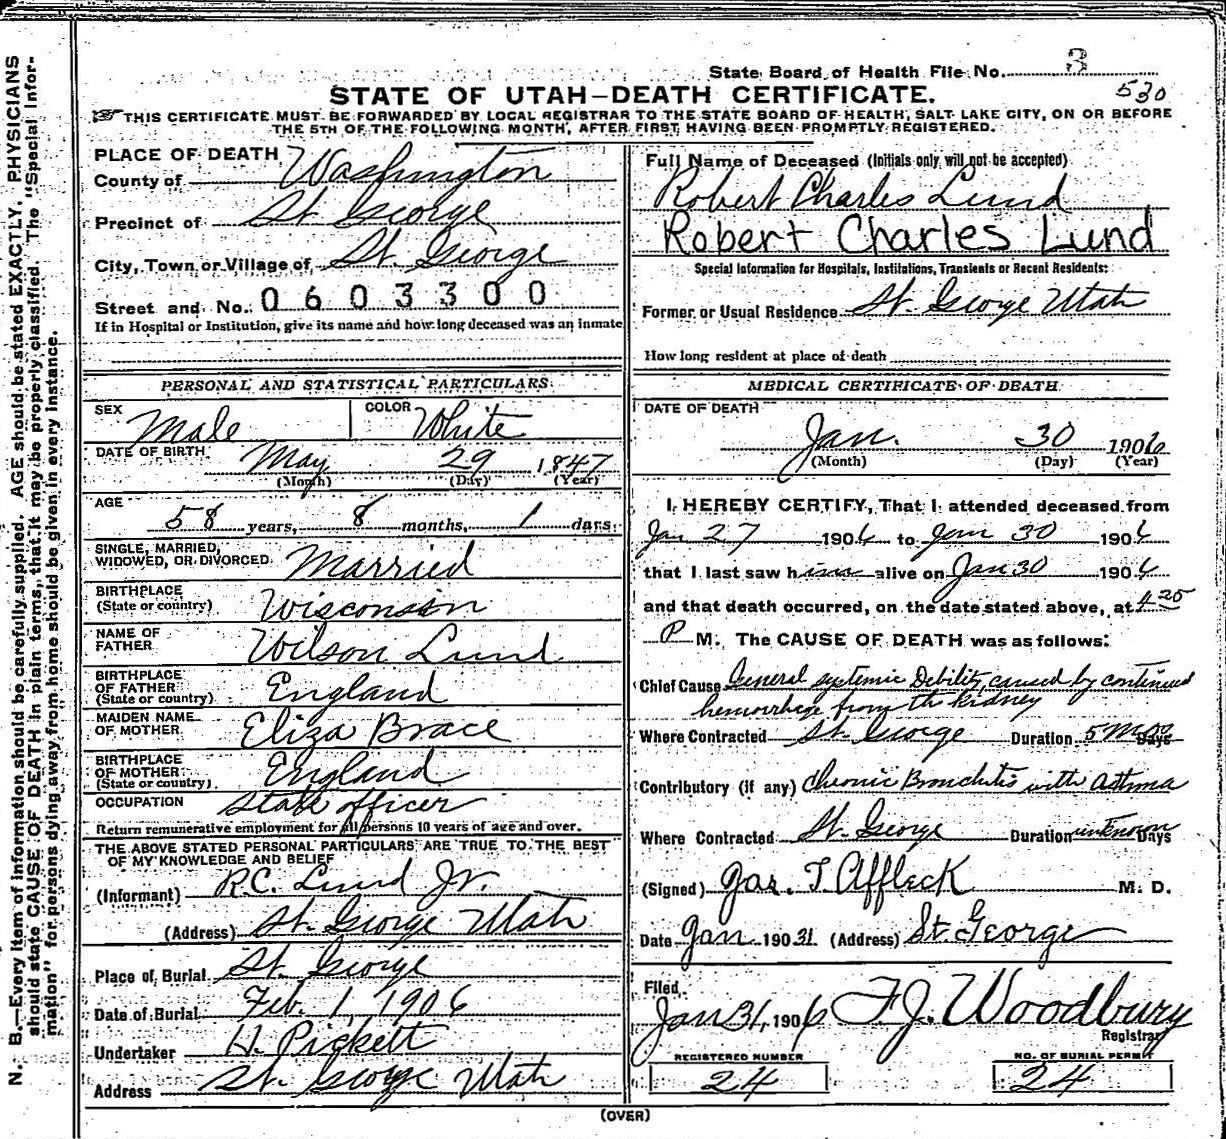 State Board of Health File No. 3
530
STATE OF UTAH—DEATH CERTIFICATE.
THIS CERTIFICATE MUST BE FORWARDED BY LOCAL REGISTRAR TO THE STATE BOARD OF HEALTH, SALT LAKE CITY, ON OR BEFORE
THE 5TH OF THE FOLLOWING MONTH, AFTER FIRST HAVING BEEN PROMPTLY REGISTERED.
PLACE OF DEATH
County of Washington
Precinct of St. George
City, Town or Village of St. George
Street and No. 0603300
If in Hospital or Institution, give its name and how long deceased was an inmate
PERSONAL AND STATISTICAL PARTICULARS
SEX Male COLOR White
DATE OF BIRTH May 29 1847
(Month) (Day) (Year)
AGE
58 years, 8 months, 1 days
SINGLE, MARRIED,
WIDOWED, OR DIVORCED Married
BIRTHPLACE
(State or country) Wisconsin
NAME OF
FATHER Wilson Lund
BIRTHPLACE
OF FATHER
(State or country) England
MAIDEN NAME
OF MOTHER Eliza Brace
BIRTHPLACE
OF MOTHER
(State or country) England
OCCUPATION State officer
Return remunerative employment for all persons 10 years of age and over.
THE ABOVE STATED PERSONAL PARTICULARS ARE TRUE TO THE BEST
OF MY KNOWLEDGE AND BELIEF
(Informant) R.C. Lund Jr.
(Address) St. George Utah
Place of Burial St. George
Date of Burial Feb. 1, 1906
Undertaker H. Pickett
Address St. George Utah
Full Name of Deceased (Initials only will not be accepted)
Robert Charles Lund
Robert Charles Lund
Special Information for Hospitals, Institutions, Transients or Recent Residents:
Former or Usual Residence St. George Utah
How long resident at place of death
MEDICAL CERTIFICATE OF DEATH
DATE OF DEATH
Jan. 30 1906
(Month) (Day) (Year)
I HEREBY CERTIFY, That I attended deceased from
Jan 27 1906 to Jan 30 1906
that I last saw him alive on Jan 30 1906
and that death occurred, on the date stated above, at
P M. The CAUSE OF DEATH was as follows:
Chief Cause General systemic Debility, caused by continued
hemorrhage from the kidney
Where Contracted St. George Duration 5 mos Days
Contributory (if any) Chronic Bronchitis with Asthma
Where Contracted St. George Duration unknown Days
(Signed) Jas. T Affleck M. D.
Date Jan 190 31 (Address) St. George
Filed
Jan 31, 1906 F.J. Woodbury
Registrar
REGISTERED NUMBER NO. OF BURIAL PERMIT
24 24
(OVER)
N. B.—Every item of information should be carefully supplied. AGE should be stated EXACTLY. PHYSICIANS
should state CAUSE OF DEATH in plain terms, that it may be properly classified. The "Special Infor-
mation" for persons dying away from home should be given in every instance.